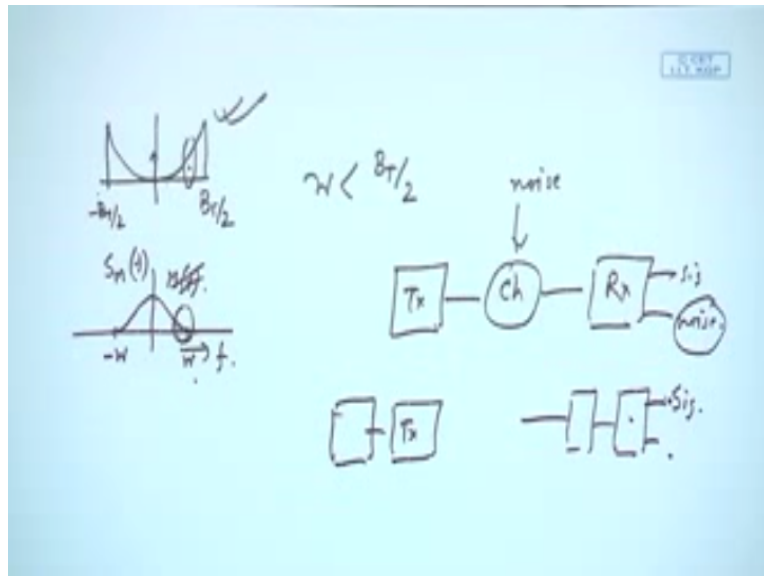 -B_T/2
B_T/2
W < B_T/2
noise
S_m(f)
-W
W
f.
Tx
Ch
Rx
Sig
noise.
Tx
Sig.